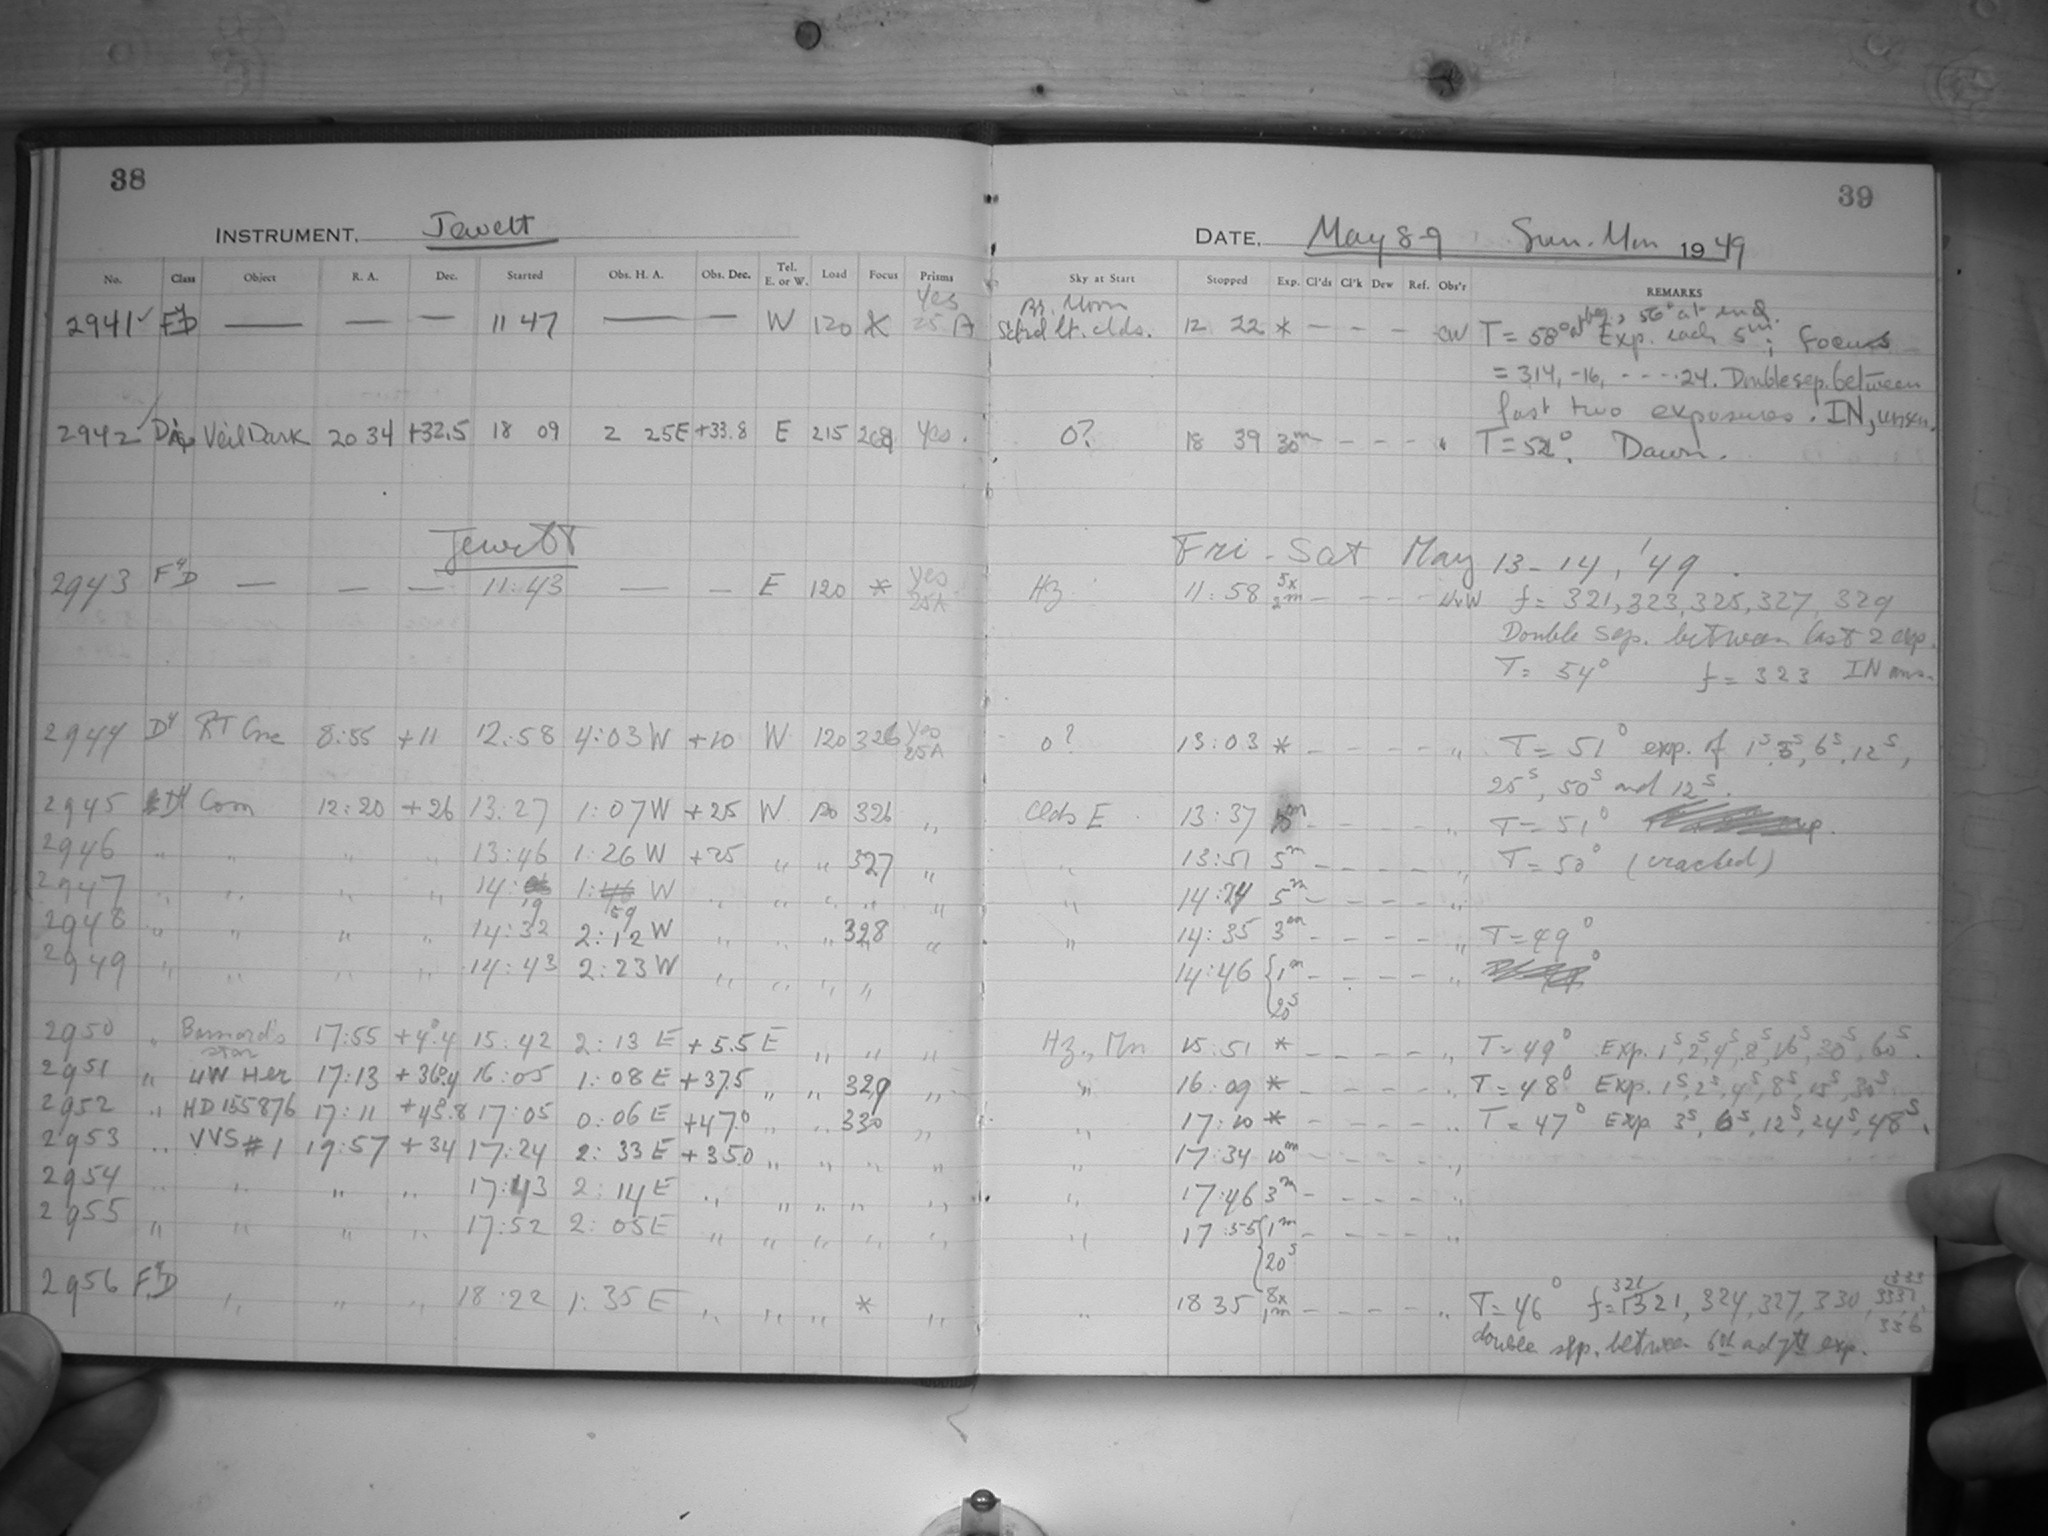 38
INSTRUMENT, Jewett
No. Class Object R. A. Dec. Started Obs. H. A. Obs. Dec. Tel. E. or W. Load Focus Prisms
2941 ✓ — — — 11 47 — — W 120 * Yes 25 A
2942 Veil Dark 20 34 +32.5 18 09 2 25E +33.8 E 215 268 Yes.
Jewett
2943 F4D — — — 11:43 — — E 120 * yes 25A
2944 D4 RT Cnc 8:55 +11 12:58 4:03 W +10 W 120 326 Yes 25A
2945 D4 Com 12:20 +26 13:27 1:07 W +25 W 120 326 "
2946 " " " " 13:46 1:26 W +25 " " 327 "
2947 " " " " 14:19 1:59 W " " " " "
2948 " " " " 14:32 2:12 W " " " 328 "
2949 " " " " 14:43 2:23 W " " " "
2950 " Barnard's star 17:55 +4°.4 15:42 2:13 E +5.5 E " " "
2951 " UW Her 17:13 +36°.4 16:05 1:08 E +37.5 " " 329 "
2952 " HD 155876 17:11 +45.8 17:05 0:06 E +47.0 " " 330 "
2953 " VVS #1 19:57 +34 17:24 2:33 E +35.0 " " " "
2954 " " " " 17:43 2:14 E " " " " "
2955 " " " " 17:52 2:05 E " " " " "
2956 F4D " " " 18:22 1:35 E " " " * "
39
DATE, May 8-9 Sun.-Mon 1949
Sky at Start Stopped Exp. Cl'ds Cl'k Dew Ref. Obs'r REMARKS
Br. Moon
Sctrd lt. clds. 12 22 * — — — CW T = 58° at beg., 56° at end. Exp. each 5m; Focus
= 314, -16, - - - - 24. Double sep. between
last two exposures. IN,
0? 18 39 30m — — — — " T = 52°. Dawn.
Fri - Sat May 13-14, '49.
Hz 11:58 5x 2m — — — — f = 321, 323, 325, 327, 329
Double sep. between last 2 exp.
T = 54° f = 323 IN
0? 13:03 * — — — — " T = 51° exp. of 1s, 3s, 6s, 12s,
25s, 50s and 12s.
Clds E 13:37 10m — — — — " T = 51°
" 13:51 5m — — — — " T = 50° (cracked)
" 14:24 5m — — — — "
" 14:35 3m — — — — " T = 49°
14:46 { 1m — — — — "
20s
Hz., Mn 15:51 * — — — — " T = 49° Exp. 1s, 2s, 4s, 8s, 16s, 30s, 60s.
" 16:09 * — — — — " T = 48° Exp. 1s, 2s, 4s, 8s, 15s, 30s
" 17:10 * — — — — " T = 47° Exp. 3s, 6s, 12s, 24s, 48s.
" 17:34 10m — — — — "
" 17:46 3m — — — — "
" 17:55 { 1m — — — — "
20s
" 18 35 8x 1m — — — — " T = 46° f = 321, 324, 327, 330, 333, 336
double sep. between 6th and 7th exp.